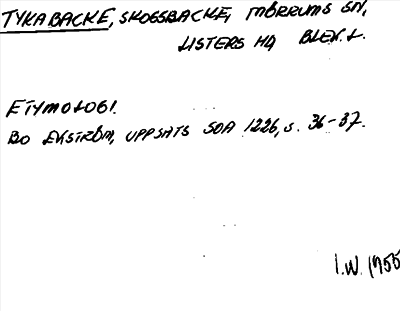 TYKABACKE, SKOGSBACKE, MÖRRUMS SN,
LISTERS HD BLEK. L.
ETYMOLOGI.
BO EKSTRÖM, UPPSATS SOA 1226, s. 36-37.
I.W. 1955